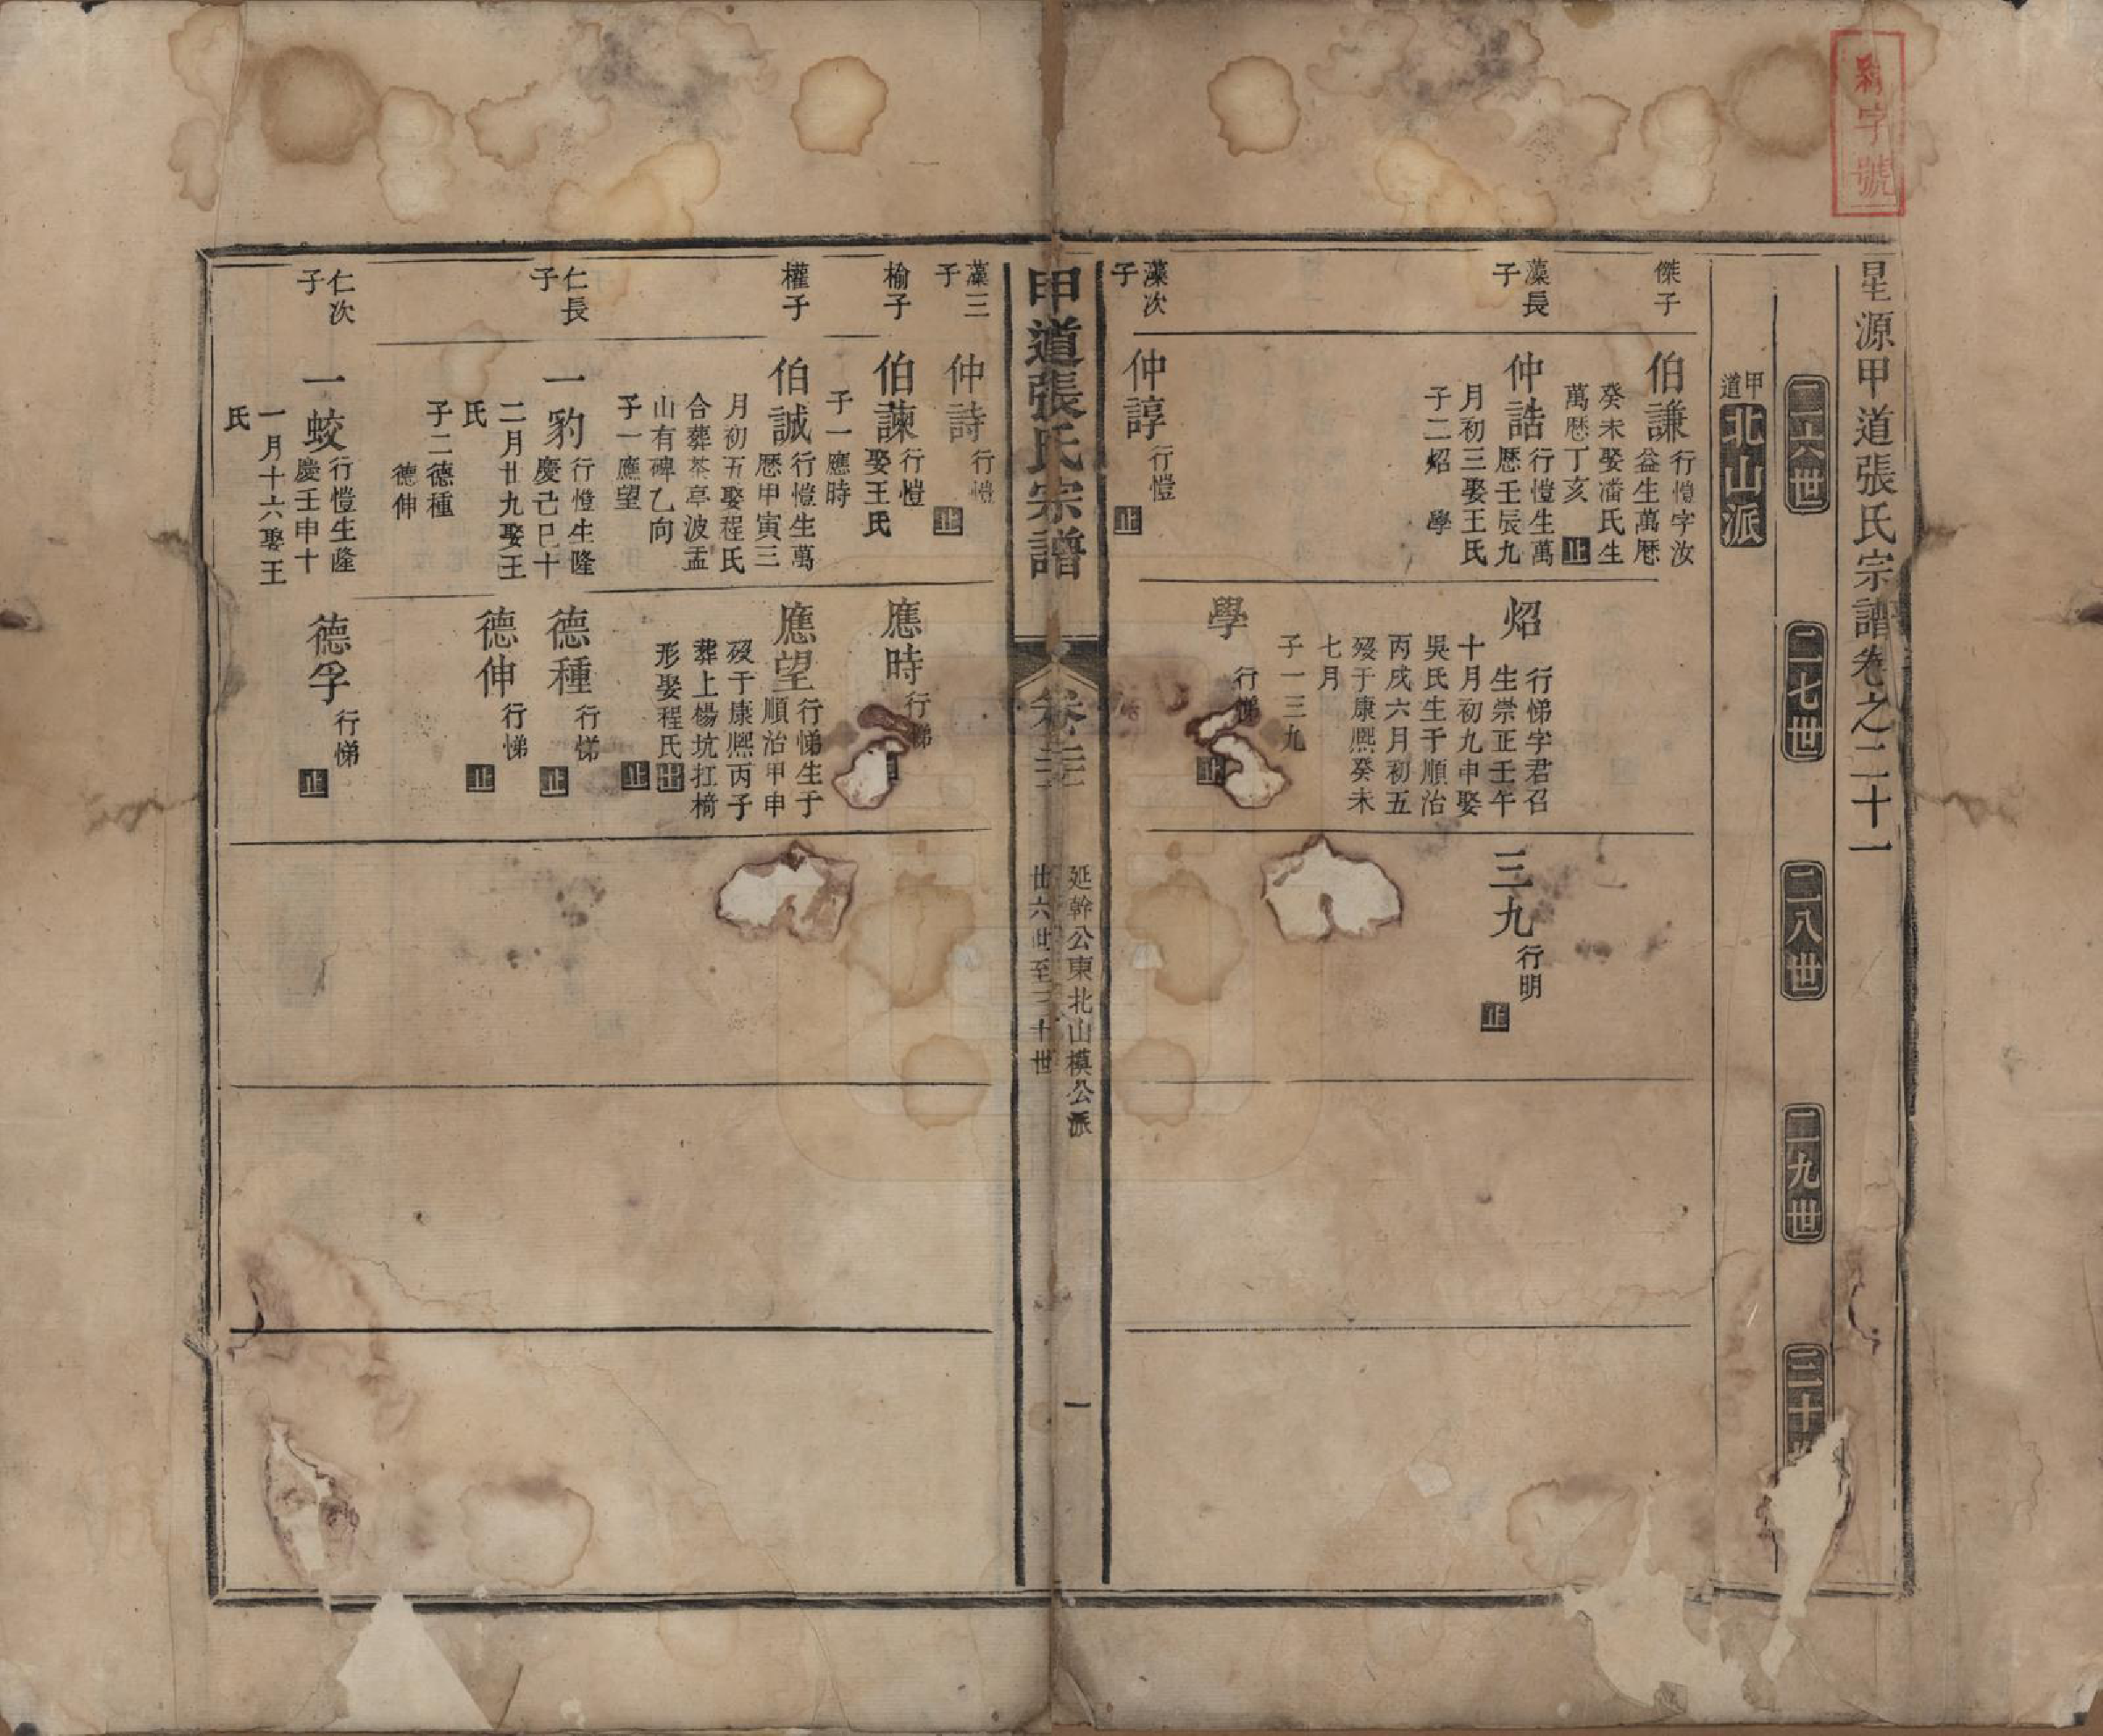 星源甲道張氏宗譜卷之二十一
字號
二六世
二七世
二八世
二九世
三十
甲道
北山派
傑子
伯謙
行愷字汝
益生萬厯
癸未娶潘氏生
萬厯丁亥 止
藻長子
仲誥
行愷生萬
厯壬辰九
月初三娶王氏
子二炤 學
炤
行悌字君召
生崇正壬午
十月初九申娶
吳氏生于順治
丙戌六月初五
歿于康熈癸未
七月
子一三九
三九
行明
止
學
行悌
止
藻次子
仲諄
行愷
止
甲道張氏宗譜
卷二十一
延幹公東北山模公派
廿六世至三十世
一
藻三子
仲詩
行愷
止
榆子
伯諫
行愷
娶王氏
子一應時
應時
行悌
權子
伯誠
行愷生萬
厯甲寅三
月初五娶程氏
合葬茶亭波盂
山有碑乙向
子一應望
應望
行悌生于
順治甲申
歿于康熈丙子
葬上楊坑扛椅
形娶程氏出
止
仁長子
一豹
行愷生隆
慶己巳十
二月廿九娶王
氏
子二德種
德伸
德種
行悌
止
德伸
行悌
止
仁次子
一蛟
行愷生隆
慶壬申十
一月十六娶王
氏
德孚
行悌
止